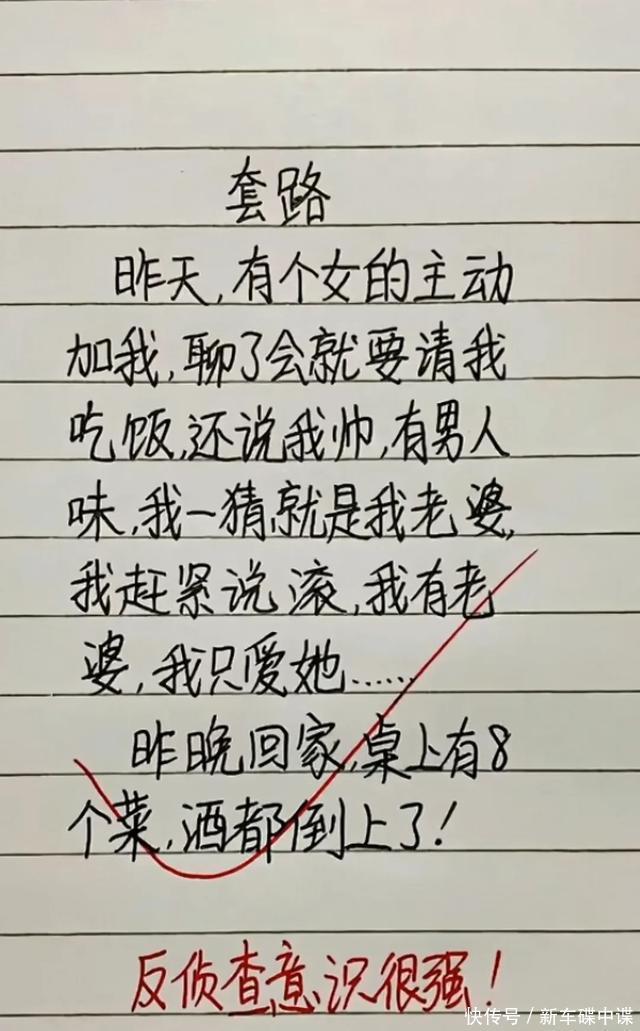 套路
昨天,有个女的主动
加我,聊了会就要请我
吃饭,还说我帅,有男人
味,我一猜就是我老婆,
我赶紧说滚,我有老
婆,我只爱她……
昨晚回家,桌上有8
个菜,酒都倒上了!
反侦查意识很强!
快传号/新车碟中谍